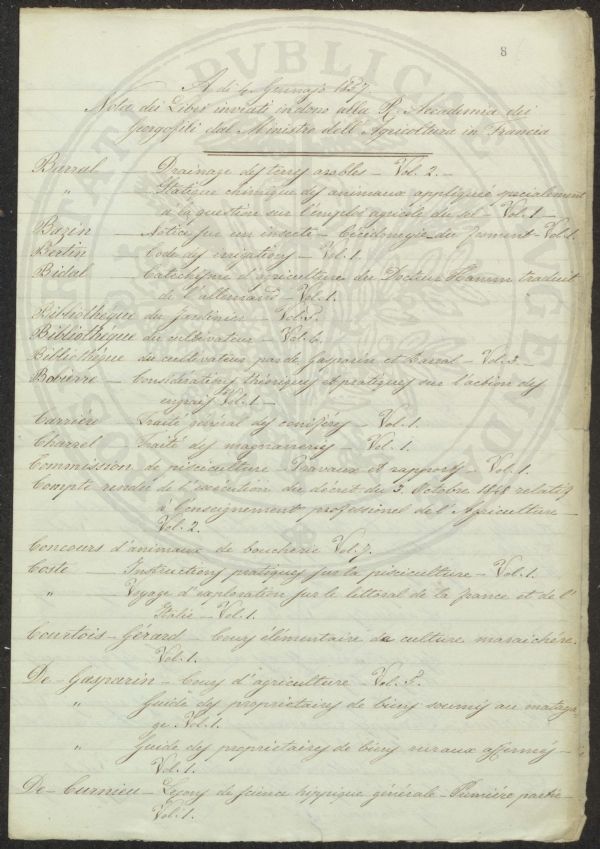 8
A dì 4. Gennajo 1857.
Nota dei Libri inviati in dono alla R. Accademia dei
Georgofili dal Ministro dell'Agricoltura in Francia
Barral — Drainage des terres arables — Vol. 2. —
" — Statique chimique des animaux appliquée specialement
à la question sur l'emploi agricole du sel — Vol. 1 —
Bazin — Notice sur un insecte — Cécidomyie du froment — Vol. 1.
Bertin — Code des irrigations — Vol. 1.
Bidal — Catéchisme d'agriculture du Docteur Hamm traduit
de l'allemand — Vol. 1.
Bibliothéque du jardinier — Vol. 5.
Bibliothéque du cultivateur — Vol. 6.
Bibliothéque du cultivateur par de Gasparin et Barral — Vol. 3. —
Bobierre — Considérations théoriques et pratiques sur l'action des
engrais Vol. 1 —
Carrière — Traité général des conifères — Vol. 1.
Charrel — Traité des magnaneries — Vol. 1.
Commission de pisciculture — Travaux et rapports — Vol. 1.
Compte rendu de l'exécution du décret du 3. Octobre 1848 relatif
à l'enseignement professionel de l'Agriculture —
Vol. 2.
Concours d'animaux de boucherie Vol. 7.
Coste — Instructions pratiques sur la pisciculture — Vol. 1.
" — Voyage d'exploration sur le littoral de la france et de l'
Italie — Vol. 1.
Courtois-Gérard — Cours élémentaire de culture maraichère.
Vol. 1.
De-Gasparin — Cours d'agriculture — Vol. 5.
" Guide des propriétaires de biens soumis au métaya-
ge Vol. 1.
" Guide des proprietaires de biens ruraux affermés —
Vol. 1.
De-Curnieu — Leçons de science hippique générale — Première partie —
Vol. 1.